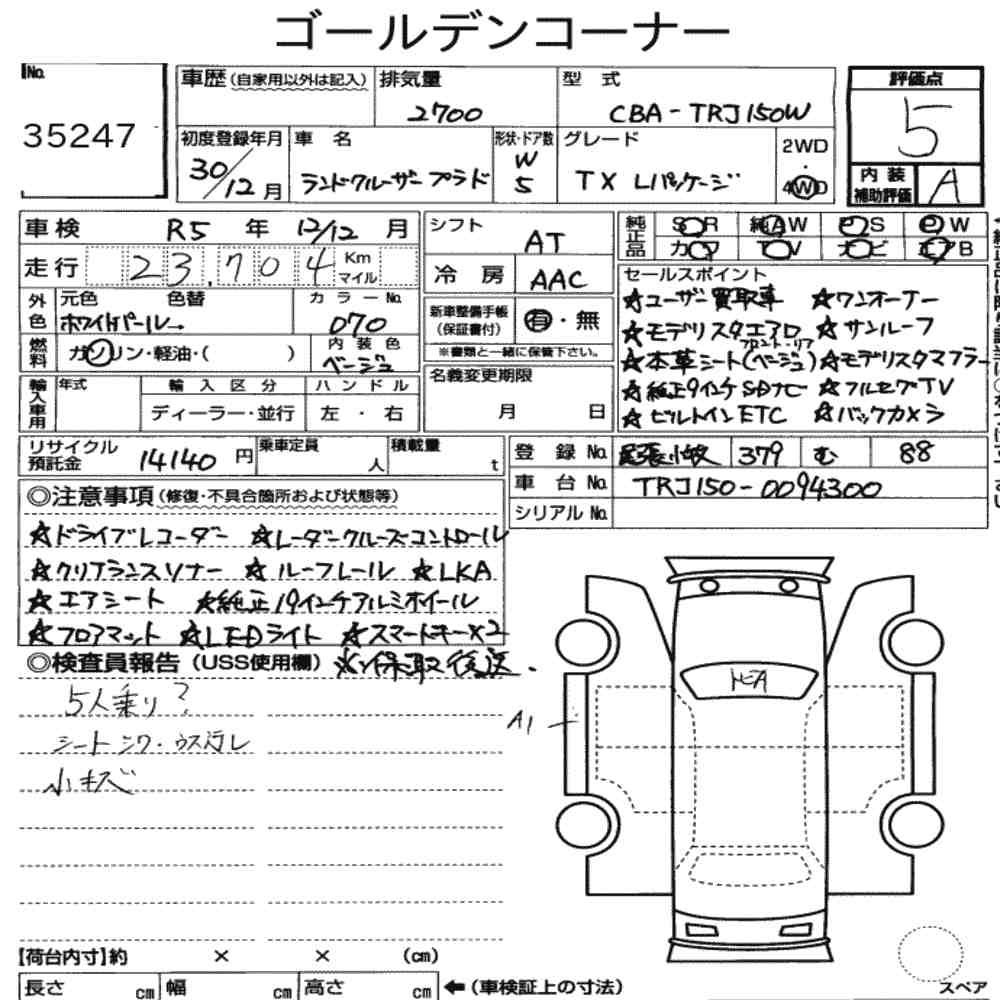 ゴールデンコーナー
No.
35247
車歴(自家用以外は記入)
排気量
2700
型 式
CBA-TRJ150W
評価点
5
初度登録年月
30/12月
車 名
ランドクルーザープラド
形状・ドア数
W
5
グレード
TX Lパッケージ
2WD
・
4WD
内装
補助評価
A
車検 R5 年 12/12 月
走行 23,704 Km
マイル
シフト
AT
冷 房
AAC
純正品
SR 純AW PS PW
カワ TV ナビ エアB
セールスポイント
☆ユーザー買取車 ☆ワンオーナー
☆モデリスタエアロ ☆サンルーフ
フロント・リア
☆本革シート(ベージュ) ☆モデリスタマフラー
☆純正9インチSDナビ ☆フルセグTV
☆ビルトインETC ☆バックカメラ
外色
元色 色替
ホワイトパール
カラーNo.
070
燃料
ガソリン・軽油・( )
内装色
ベージュ
新車整備手帳
(保証書付)
有・無
※書類と一緒に保管下さい。
輸入車用
年式
輸入区分
ディーラー・並行
ハンドル
左・右
名義変更期限
月 日
リサイクル
預託金
14140 円
乗車定員
人
積載量
t
登録No. 尾張小牧 379 む 88
車台No. TRJ150-0094300
シリアルNo.
◎注意事項(修復・不具合箇所および状態等)
☆ドライブレコーダー ☆レーダークルーズコントロール
☆クリアランスソナー ☆ルーフレール ☆LKA
☆エアシート ☆純正19インチアルミホイール
☆フロアマット ☆LEDライト ☆スマートキー×2
◎検査員報告(USS使用欄) ※保取後送.
5人乗り?
シートシワ・ウス汚レ
小キズ
A1
【荷台内寸】約 × × (cm)
長さ cm 幅 cm 高さ cm ←(車検証上の寸法)
スペア